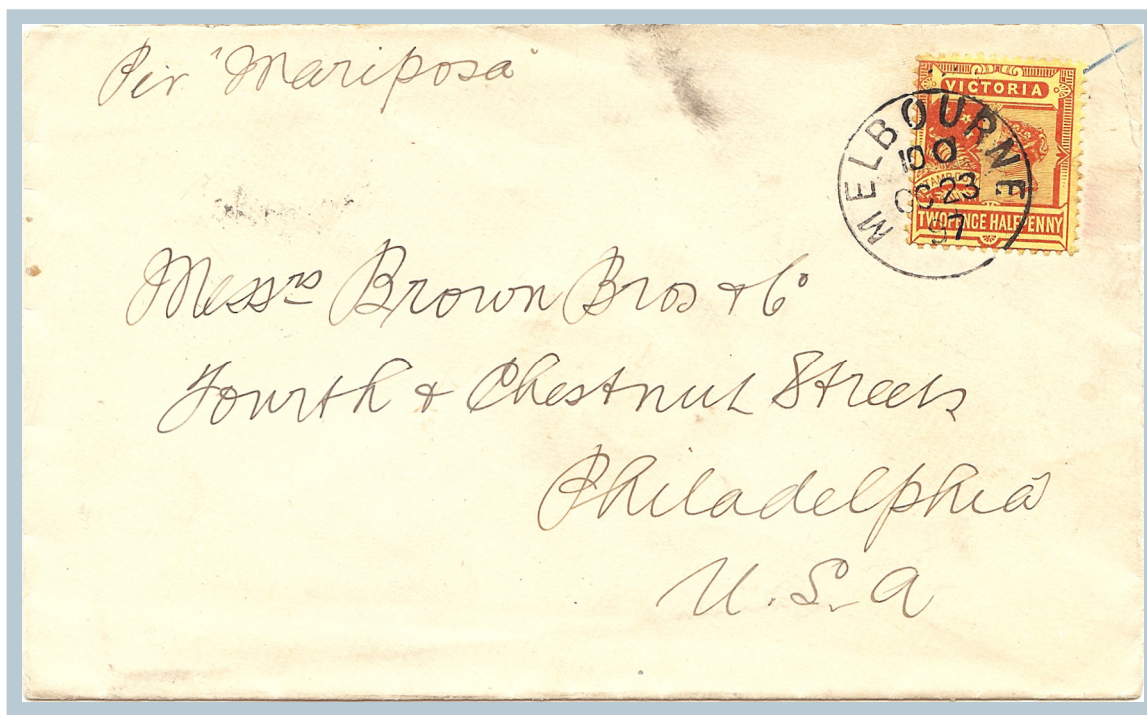 Per "Mariposa"
VICTORIA
MELBOURNE
10 O
OC 23
97
STAMP
TWOPENCE HALFPENNY
Messrs Brown Bros & Co
Fourth & Chestnut Streets
Philadelphia
U.S.A